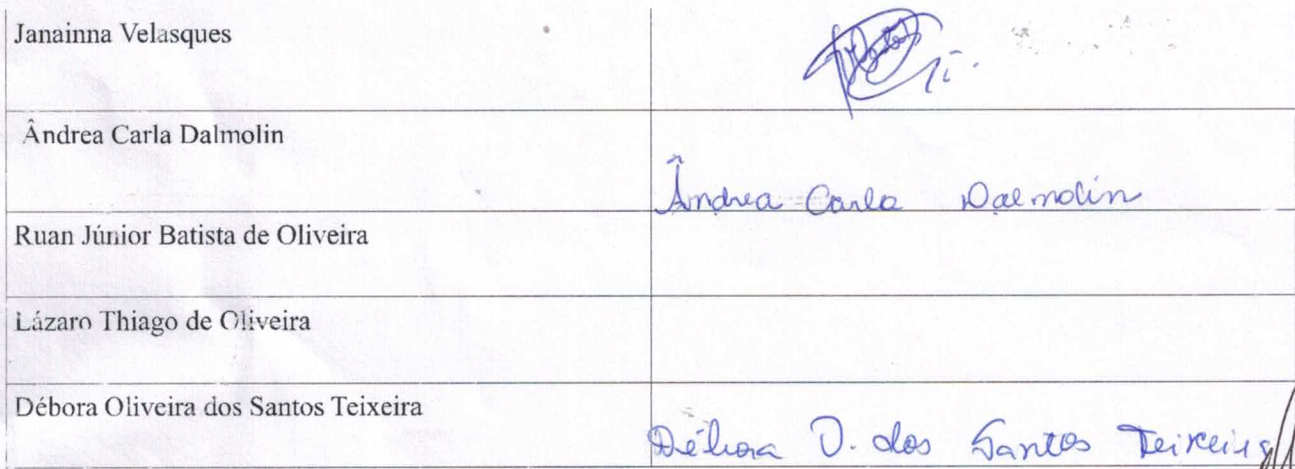 Janainna Velasques
Ândrea Carla Dalmolin
Ândrea Carla Dalmolin
Ruan Júnior Batista de Oliveira
Lázaro Thiago de Oliveira
Débora Oliveira dos Santos Teixeira
Débora O. dos Santos Teixeira